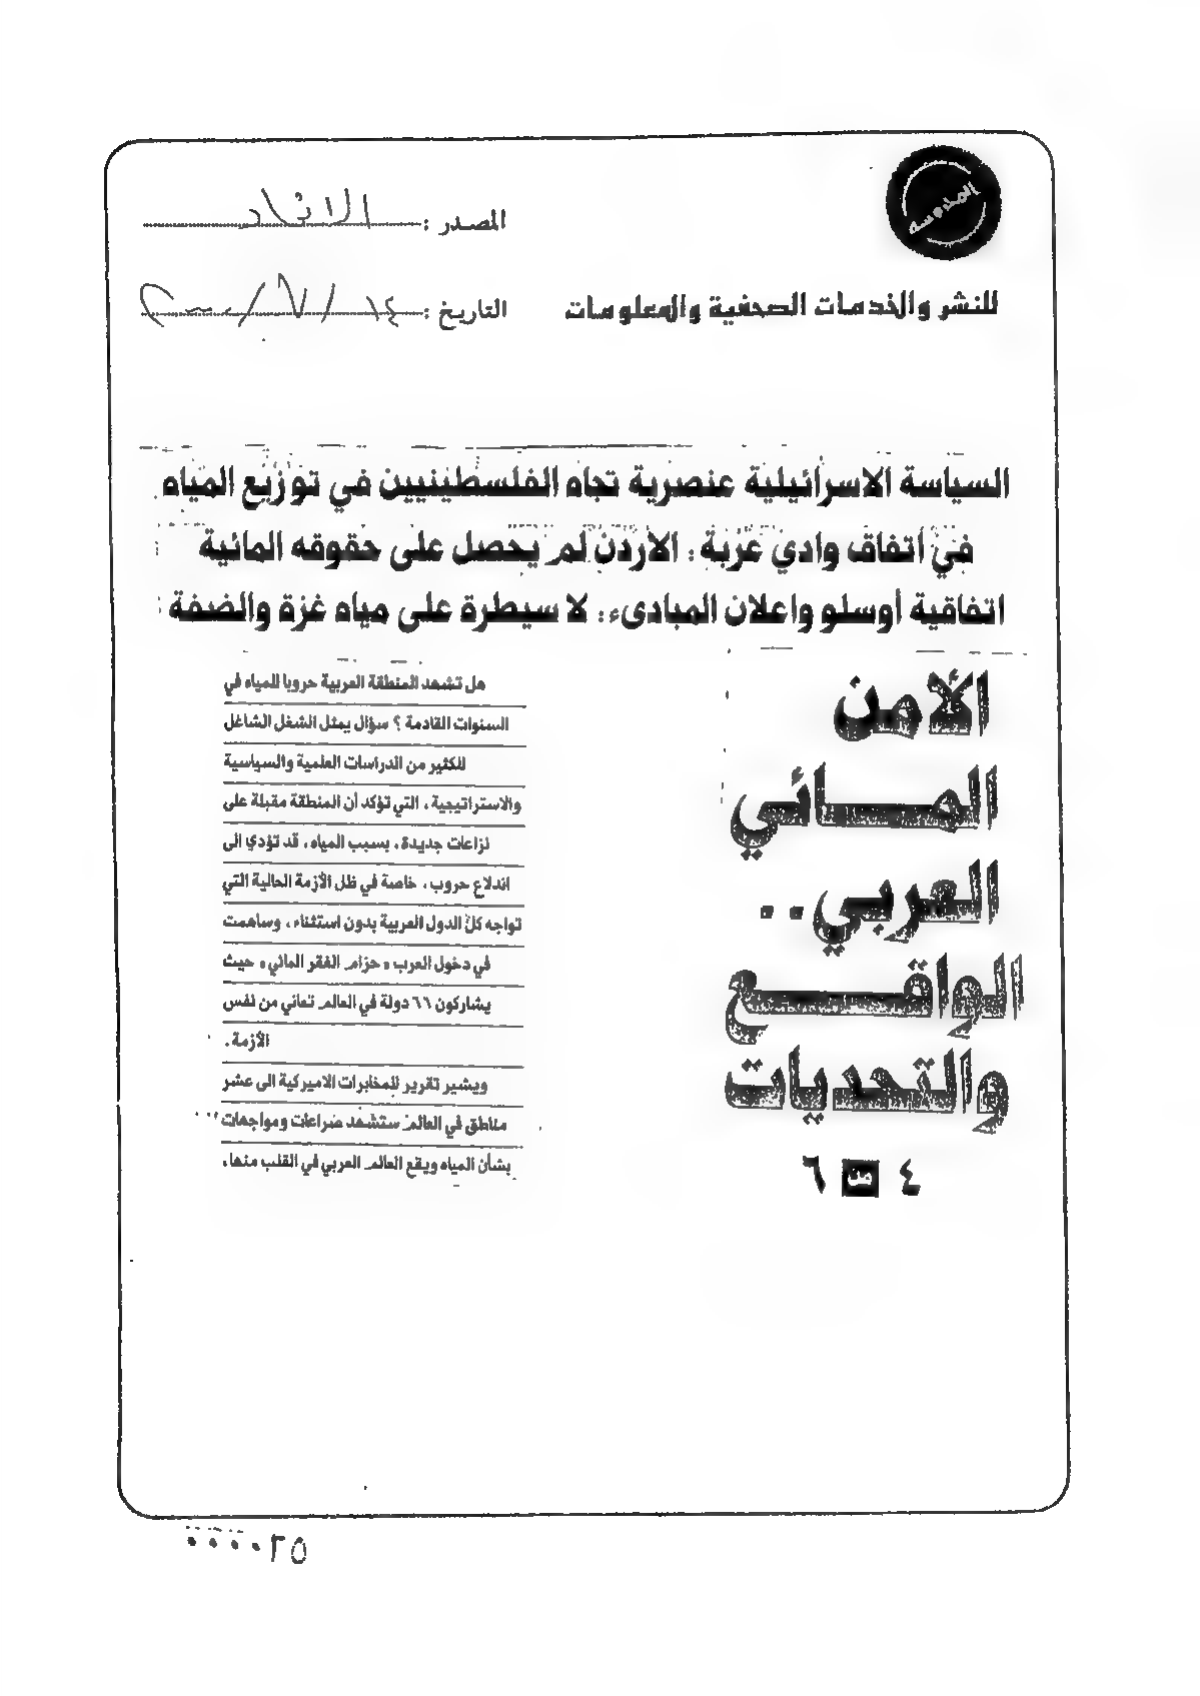 المدوسة
المصدر : الاتحاد
للنشر والخدمات الصحفية والمعلومات
التاريخ : ١٤ / ٧ / ٢٠٠٠
السياسة الاسرائيلية عنصرية تجاه الفلسطينيين في توزيع المياه
في اتفاق وادي عربة : الأردن لم يحصل على حقوقه المائية
اتفاقية أوسلو واعلان المبادىء : لا سيطرة على مياه غزة والضفة
الأمن
المـــائي
العربي ..
الواقـــع
والتحديات
٤ من ٦
هل تشهد المنطقة العربية حروبا للمياه في
السنوات القادمة ؟ سؤال يمثل الشغل الشاغل
للكثير من الدراسات العلمية والسياسية
والاستراتيجية ، التي تؤكد أن المنطقة مقبلة على
نزاعات جديدة ، بسبب المياه ، قد تؤدي الى
اندلاع حروب ، خاصة في ظل الأزمة الحالية التي
تواجه كل الدول العربية بدون استثناء ، وساهمت
في دخول العرب « حزام الفقر المائي » حيث
يشاركون ٦٦ دولة في العالم تعاني من نفس
الأزمة .
ويشير تقرير للمخابرات الاميركية الى عشر
مناطق في العالم ستشهد صراعات ومواجهات
بشأن المياه ويقع العالم العربي في القلب منها .
٠٠٠٠٢٥